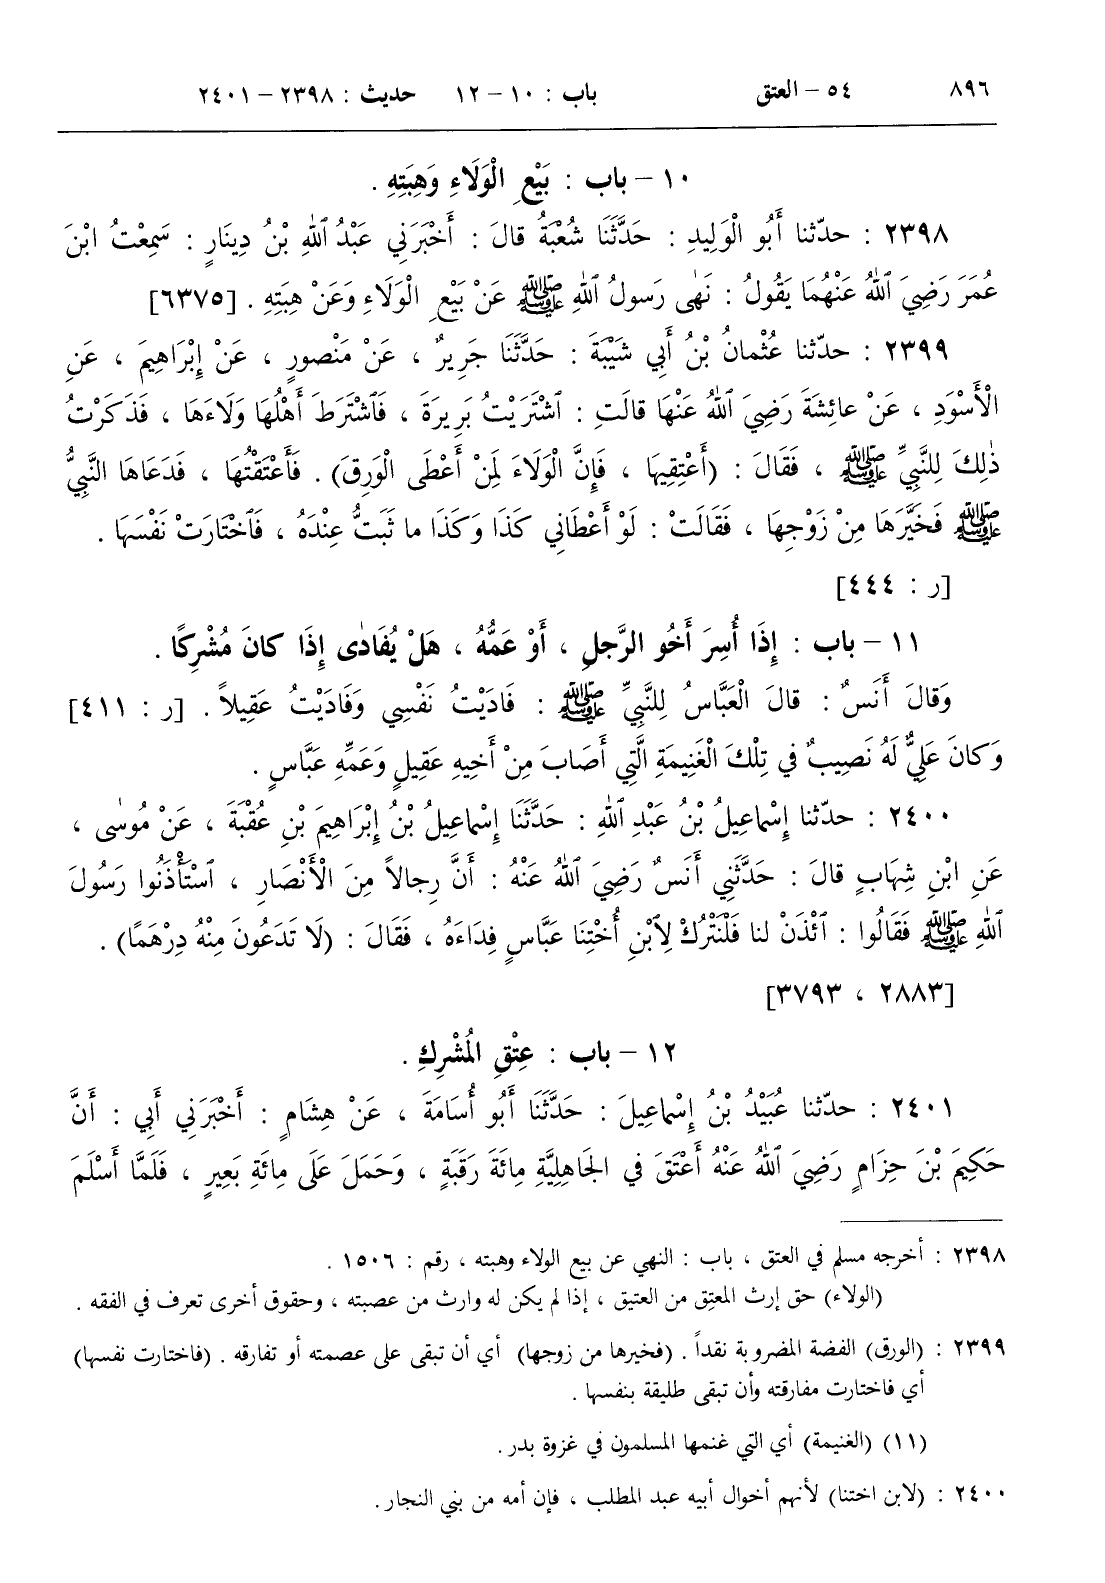 ٨٩٦ ٥٤ – العتق باب : ١٠ – ١٢ حديث : ٢٣٩٨ – ٢٤٠١
١٠ – باب : بَيْعِ الْوَلَاءِ وَهِبَتِهِ .
٢٣٩٨ : حدّثنا أَبُو الْوَلِيدِ : حَدَّثَنَا شُعْبَةُ قالَ : أَخْبَرَنِي عَبْدُ ٱللهِ بْنُ دِينَارٍ : سَمِعْتُ ابْنَ
عُمَرَ رَضِيَ ٱللهُ عَنْهُمَا يَقُولُ : نَهٰى رَسولُ ٱللهِ ﷺ عَنْ بَيْعِ الْوَلَاءِ وَعَنْ هِبَتِهِ . [٦٣٧٥]
٢٣٩٩ : حدّثنا عُثْمانُ بْنُ أَبِي شَيْبَةَ : حَدَّثَنَا جَرِيرٌ ، عَنْ مَنْصورٍ ، عَنْ إِبْرَاهِيمَ ، عَنِ
الْأَسْوَدِ ، عَنْ عائِشَةَ رَضِيَ ٱللهُ عَنْهَا قالَتِ : ٱشْتَرَيْتُ بَرِيرَةَ ، فَٱشْتَرَطَ أَهْلُهَا وَلَاءَهَا ، فَذَكَرْتُ
ذٰلِكَ لِلنَّبِيِّ ﷺ ، فَقَالَ : (أَعْتِقِيهَا ، فَإِنَّ الْوَلَاءَ لِمَنْ أَعْطَى الْوَرِقَ) . فَأَعْتَقْتُهَا ، فَدَعَاهَا النَّبِيُّ
ﷺ فَخَيَّرَهَا مِنْ زَوْجِهَا ، فَقَالَتْ : لَوْ أَعْطَانِي كَذَا وَكَذَا ما ثَبَتُّ عِنْدَهُ ، فَٱخْتَارَتْ نَفْسَهَا .
[ر : ٤٤٤]
١١ – باب : إِذَا أُسِرَ أَخُو الرَّجلِ ، أَوْ عَمُّهُ ، هَلْ يُفَادٰى إِذَا كانَ مُشْرِكًا .
وَقالَ أَنَسٌ : قالَ الْعَبَّاسُ لِلنَّبِيِّ ﷺ : فَادَيْتُ نَفْسِي وَفَادَيْتُ عَقِيلاً . [ر : ٤١١]
وَكانَ عَلِيٌّ لَهُ نَصِيبٌ في تِلْكَ الْغَنِيمَةِ الَّتِي أَصَابَ مِنْ أَخِيهِ عَقِيلٍ وَعَمِّهِ عَبَّاسٍ .
٢٤٠٠ : حدّثنا إِسْماعِيلُ بْنُ عَبْدِ ٱللهِ : حَدَّثَنَا إِسْماعِيلُ بْنُ إِبْرَاهِيمَ بْنِ عُقْبَةَ ، عَنْ مُوسٰى ،
عَنِ ابْنِ شِهَابٍ قالَ : حَدَّثَنِي أَنَسٌ رَضِيَ ٱللهُ عَنْهُ : أَنَّ رِجالاً مِنَ الْأَنْصَارِ ، ٱسْتَأْذَنُوا رَسُولَ
ٱللهِ ﷺ فَقَالُوا : ٱئْذَنْ لنا فَلْنَتْرُكْ لِٱبْنِ أُخْتِنَا عَبَّاسٍ فِدَاءَهُ ، فَقَالَ : (لَا تَدَعُونَ مِنْهُ دِرْهَمًا) .
[٢٨٨٣ ، ٣٧٩٣]
١٢ – باب : عِتْقِ الْمُشْرِكِ .
٢٤٠١ : حدّثنا عُبَيْدُ بْنُ إِسْماعِيلَ : حَدَّثَنَا أَبُو أُسَامَةَ ، عَنْ هِشَامٍ : أَخْبَرَنِي أَبِي : أَنَّ
حَكِيمَ بْنَ حِزَامٍ رَضِيَ ٱللهُ عَنْهُ أَعْتَقَ في الجَاهِلِيَّةِ مِائَةَ رَقَبَةٍ ، وَحَمَلَ عَلَى مِائَةِ بَعِيرٍ ، فَلَمَّا أَسْلَمَ
٢٣٩٨ : أخرجه مسلم في العتق ، باب : النهي عن بيع الولاء وهبته ، رقم : ١٥٠٦ .
(الولاء) حق إرث المعتِق من العتيق ، إذا لم يكن له وارث من عصبته ، وحقوق أخرى تعرف في الفقه .
٢٣٩٩ : (الورق) الفضة المضروبة نقداً . (فخيرها من زوجها) أي أن تبقى على عصمته أو تفارقه . (فاختارت نفسها)
أي فاختارت مفارقته وأن تبقى طليقة بنفسها .
(١١) (الغنيمة) أي التي غنمها المسلمون في غزوة بدر .
٢٤٠٠ : (لابن اختنا) لأنهم أخوال أبيه عبد المطلب ، فإن أمه من بني النجار .